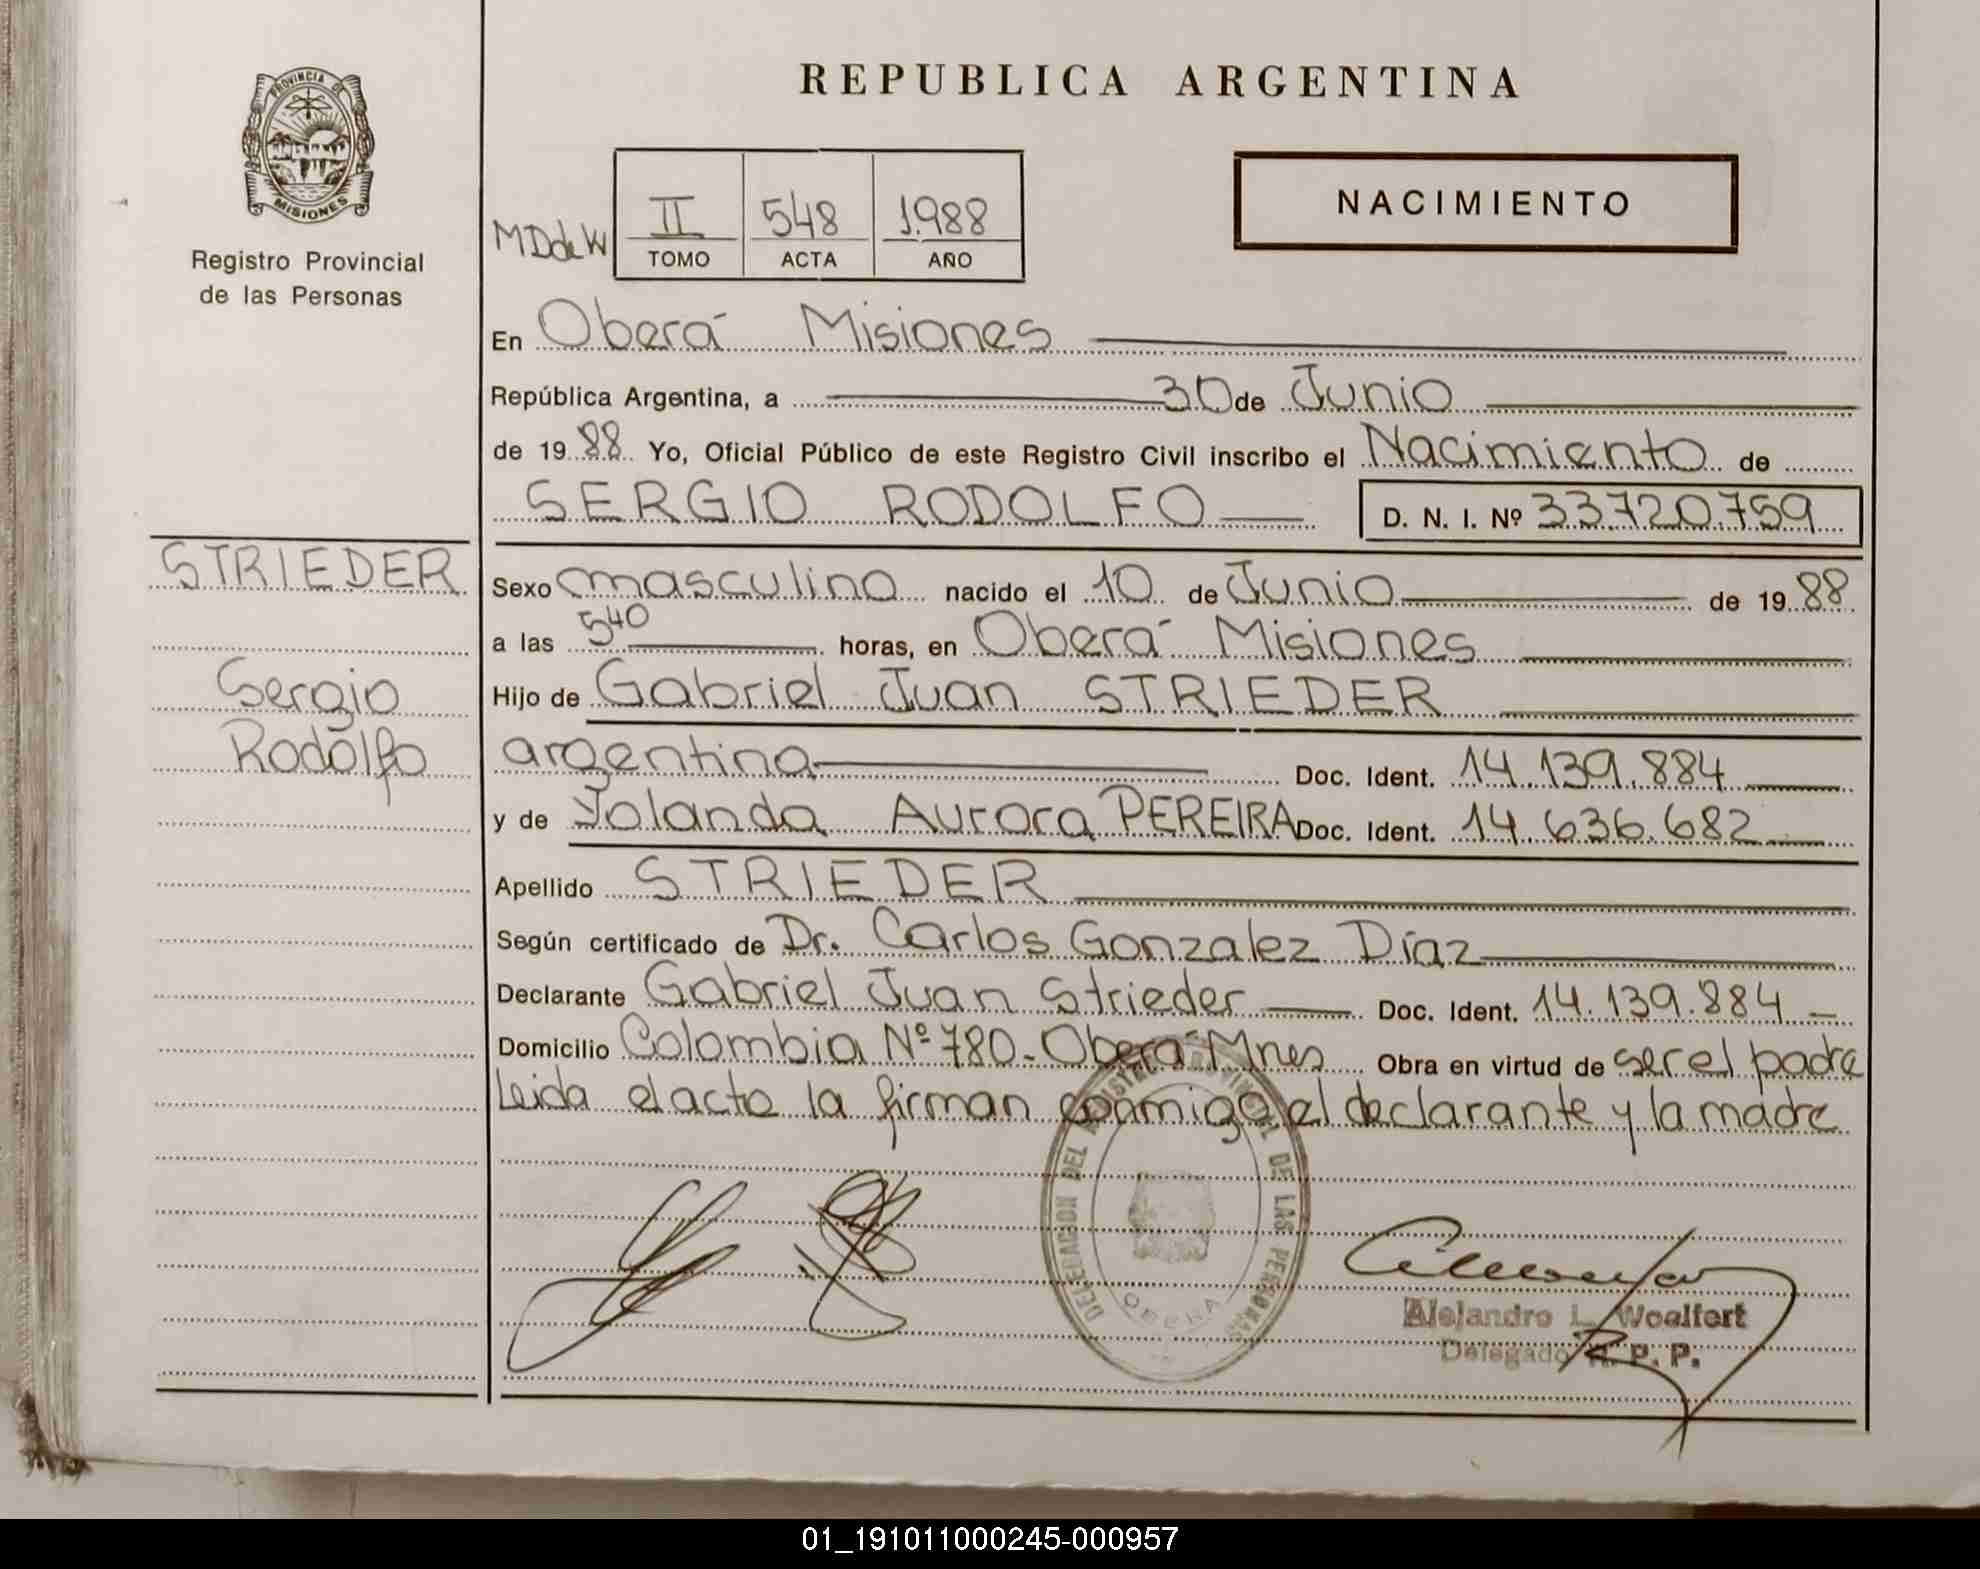 REPUBLICA ARGENTINA
PROVINCIA DE MISIONES
Registro Provincial
de las Personas
MDdeW
II 548 1.988
TOMO ACTA AÑO
NACIMIENTO
En Oberá Misiones
República Argentina, a 30 de Junio
de 1988 Yo, Oficial Público de este Registro Civil inscribo el Nacimiento de
SERGIO RODOLFO D. N. I. Nº 33720759
STRIEDER
Sergio
Rodolfo
Sexo masculino nacido el 10 de Junio de 1988
a las 5 40 horas, en Oberá Misiones
Hijo de Gabriel Juan STRIEDER
argentina Doc. Ident. 14.139.884
y de Yolanda Aurora PEREIRA Doc. Ident. 14.636.682
Apellido STRIEDER
Según certificado de Dr. Carlos Gonzalez Díaz
Declarante Gabriel Juan Strieder Doc. Ident. 14.139.884
Domicilio Colombia Nº 780 - Oberá Mnes Obra en virtud de ser el padre
Leida el acta la firman conmigo el declarante y la madre
DELEGACION DEL REGISTRO PROVINCIAL DE LAS PERSONAS
OBERA
Alejandro L. Woelfert
Delegado R. P. P.
01_191011000245-000957